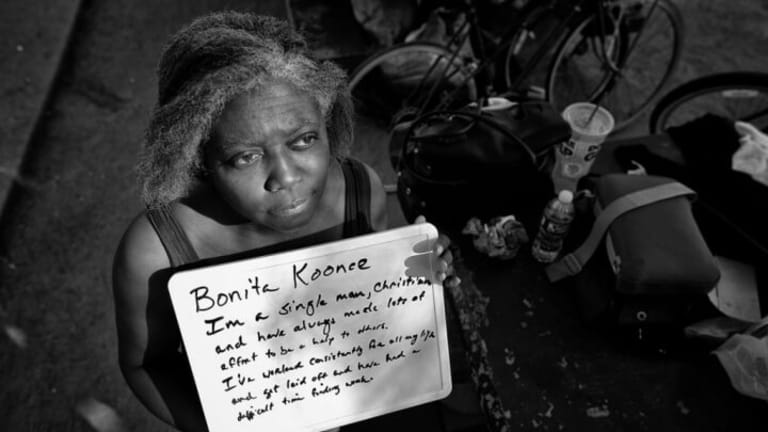 Bonita Koonce
Im a single mom, Christian
and have always made lots of
effort to be a help to others.
I've worked consistently for all my life
and got laid off and have had a
difficult time finding work.